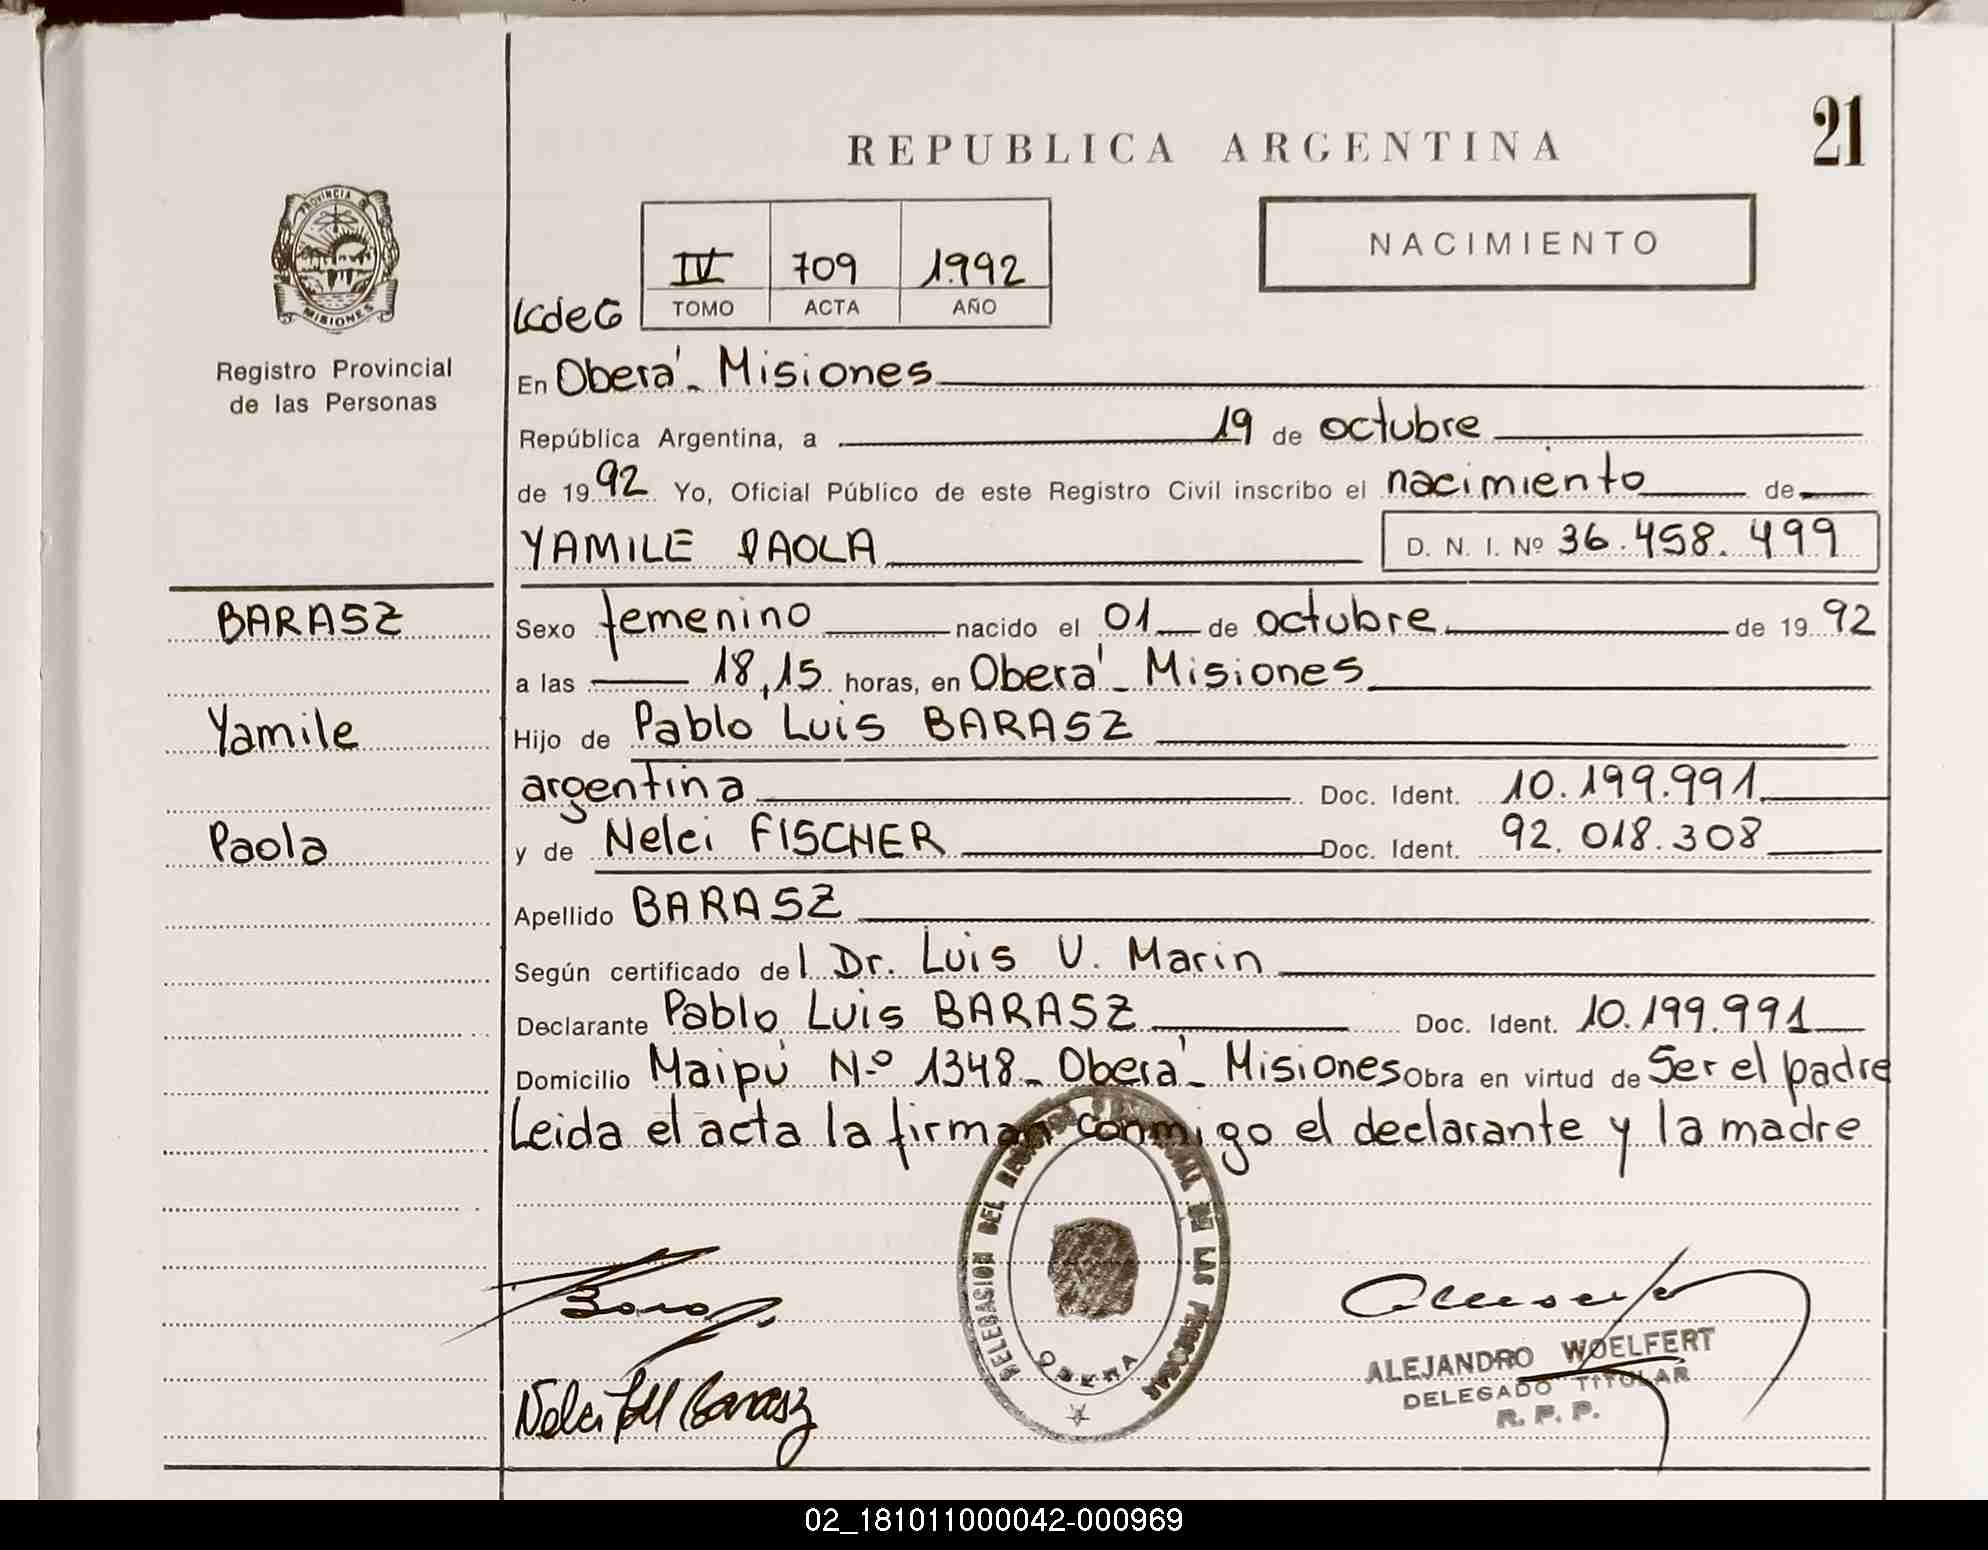 21
REPUBLICA ARGENTINA
PROVINCIA DE
MISIONES
Registro Provincial
de las Personas
NACIMIENTO
IV 709 1.992
TOMO ACTA AÑO
LcdeG
En Oberá - Misiones
República Argentina, a 19 de octubre
de 1992 Yo, Oficial Público de este Registro Civil inscribo el nacimiento de
YAMILE PAOLA D. N. I. Nº 36.458.499
BARASZ
Yamile
Paola
Sexo femenino nacido el 01 de octubre de 1992
a las 18,15 horas, en Oberá - Misiones
Hijo de Pablo Luis BARASZ
argentina Doc. Ident. 10.199.991
y de Nelci FISCHER Doc. Ident. 92.018.308
Apellido BARASZ
Según certificado del Dr. Luis V. Marin
Declarante Pablo Luis BARASZ Doc. Ident. 10.199.991
Domicilio Maipú Nº 1348 - Oberá - Misiones Obra en virtud de Ser el padre
Leida el acta la firman conmigo el declarante y la madre
DELEGACION DEL REGISTRO PROVINCIAL DE LAS PERSONAS
OBERA
Nelci Barasz
ALEJANDRO WOELFERT
DELEGADO TITULAR
R. P. P.
02_181011000042-000969